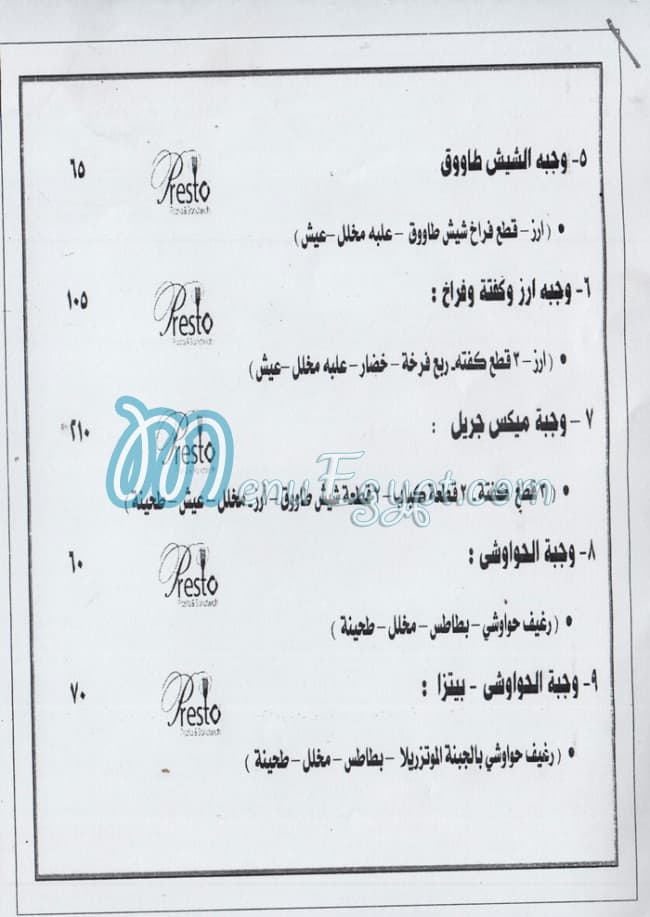 ٥- وجبه الشيش طاووق
٦٥
Presto
Pasta & Sandwich
• ( ارز - قطع فراخ شيش طاووق - علبه مخلل -عيش )
٦- وجبه ارز وكفتة وفراخ :
١٠٥
Presto
Pasta & Sandwich
• ( ارز - ٣ قطع كفته- ربع فرخة - خضار - علبه مخلل -عيش )
٧ - وجبة ميكس جريل :
٢١٠
Presto
MenuEgypt.com
• ( ٣ قطع كفتة - ٢ قطعة كباب - ٢ قطعة شيش طاووق - ارز- مخلل - عيش - طحينة )
٨- وجبة الحواوشى :
٦٠
Presto
Pasta & Sandwich
• ( رغيف حواوشي - بطاطس - مخلل - طحينة )
٩- وجبة الحواوشى - بيتزا :
٧٠
Presto
Pasta & Sandwich
• ( رغيف حواوشي بالجبنة الموتزريلا - بطاطس - مخلل - طحينة )